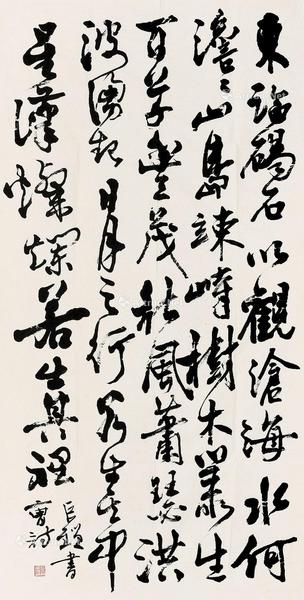 東臨碣石以觀滄海水何
澹々山島竦峙樹木叢生
百草豐茂秋風蕭瑟洪
波湧起日月之行若出其中
星漢燦爛若出其裡
巨鎖書
曹詩